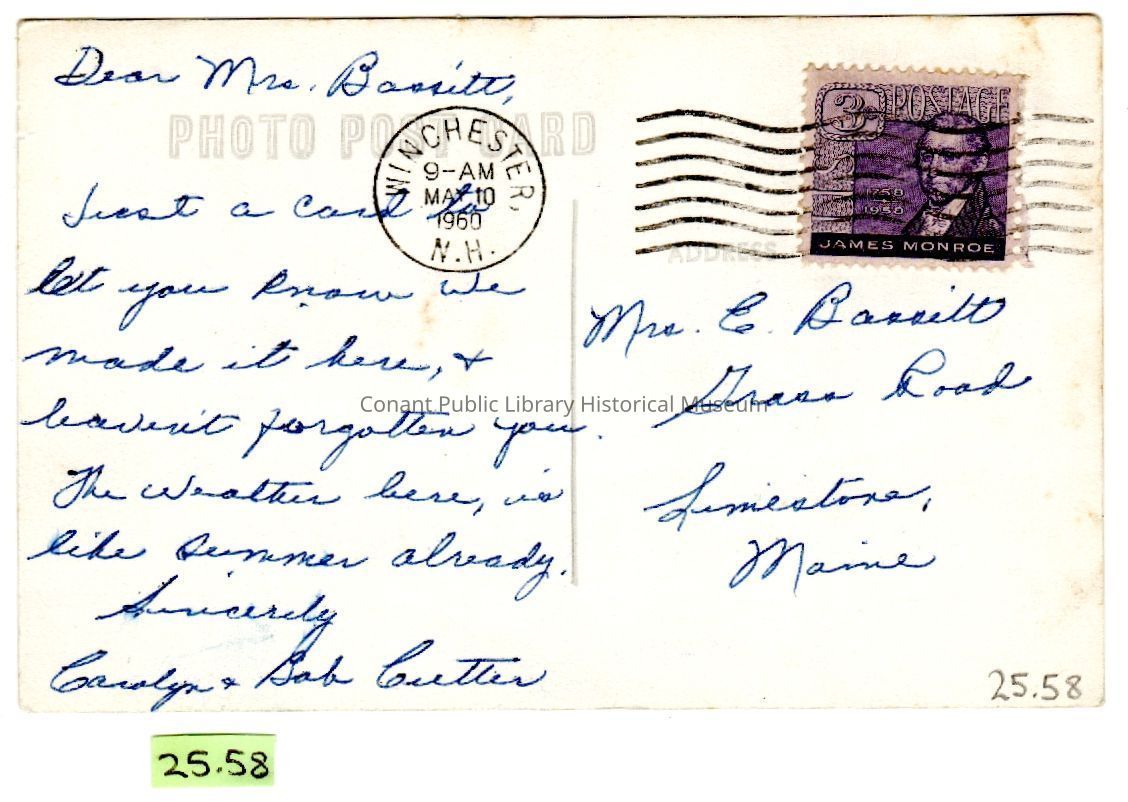 Dear Mrs. Bassitt,
PHOTO POST CARD
WINCHESTER, N.H.
9-AM
MAY 10
1960
3¢ POSTAGE
1758
1958
JAMES MONROE
ADDRESS
Just a card to
let you know we
made it here, &
haven't forgotten you.
The weather here, is
like summer already.
Sincerely
Carolyn & Bob Cutter
Mrs. E. Bassitt
Grass Road
Limestone,
Maine
Conant Public Library Historical Museum
25.58
25.58